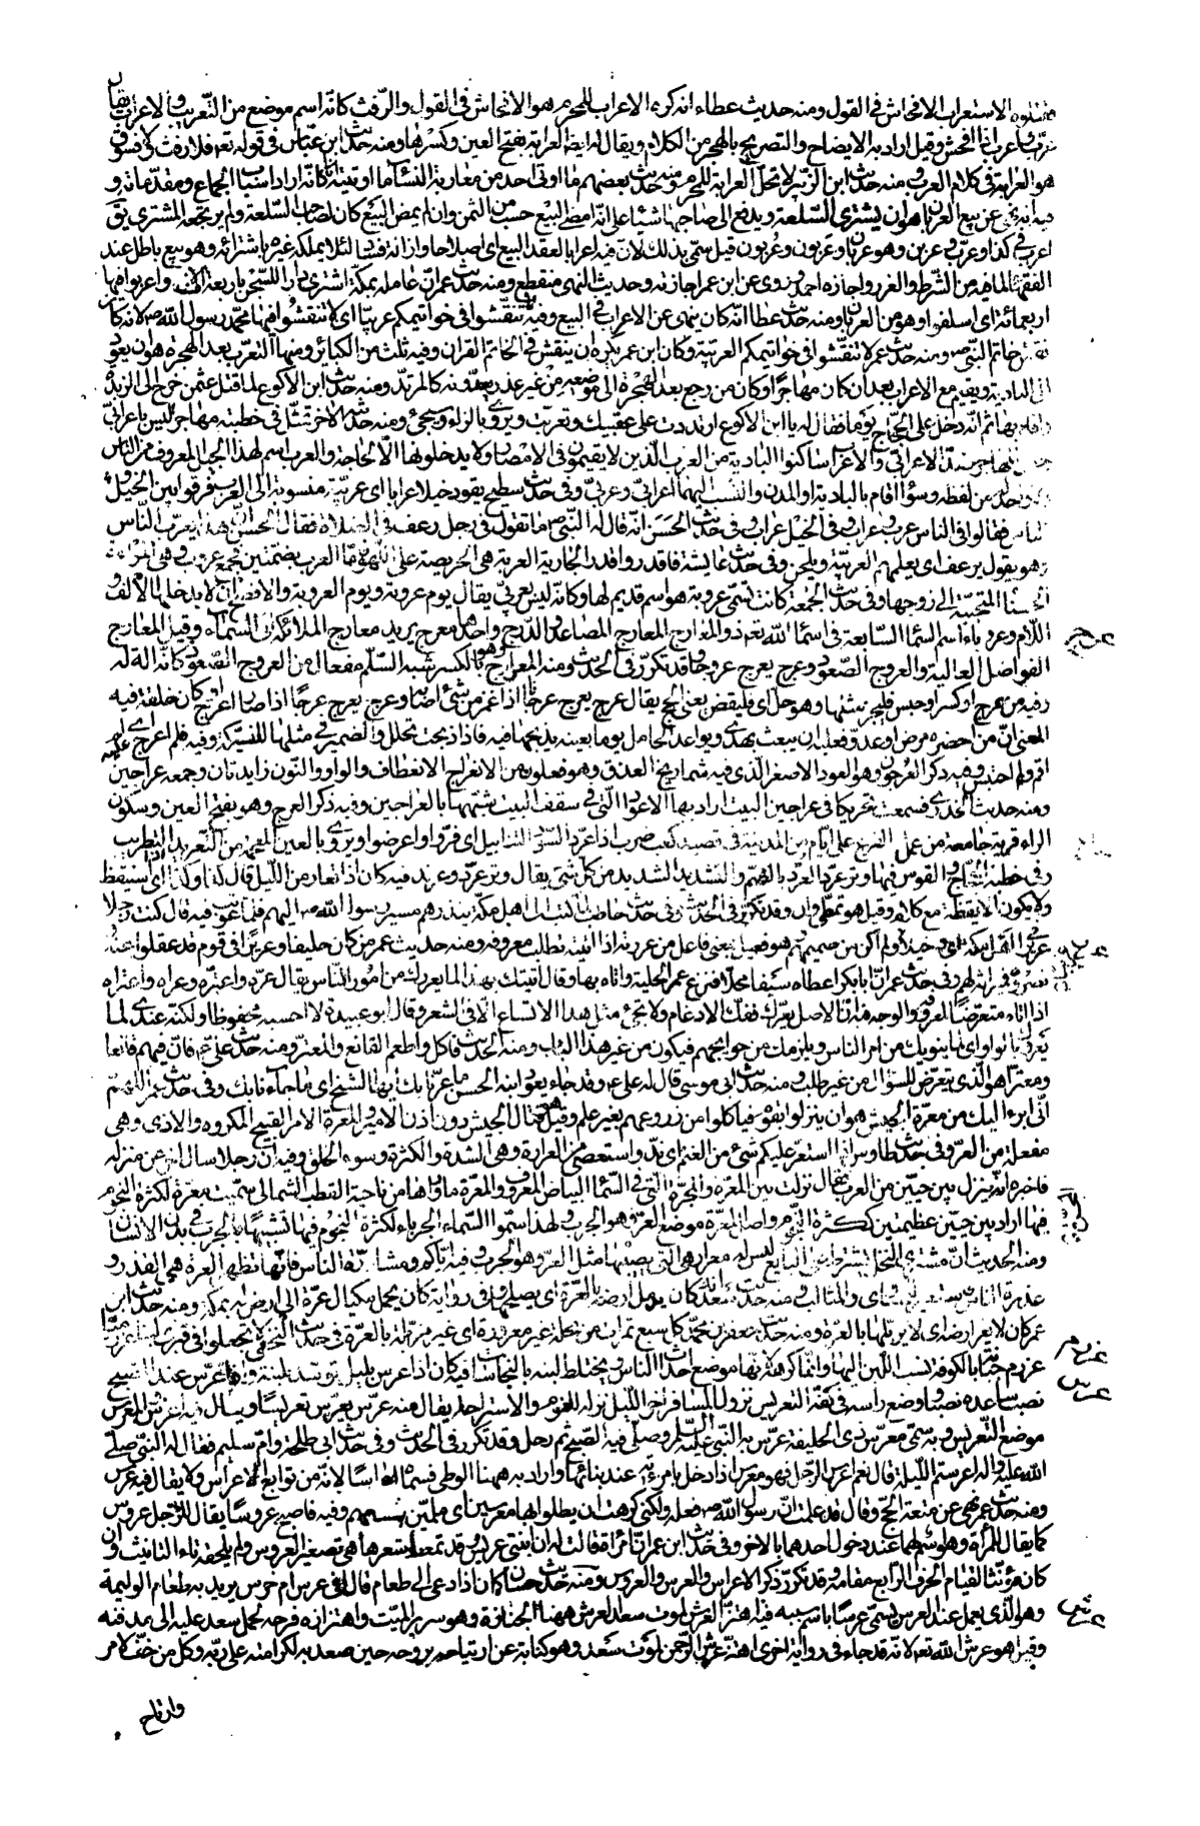 الاستعراب الافحاش في القول ومنه حديث عطاء انه كره الاعراب للمحرم هو الافحاش في القول والرفث كانه اسم موضع من التعريب والاعراب يقال
عرب واعرب اذا افحش وقيل اراد به الايضاح والتصريح بالهجر من الكلام ويقال له ايضا العرابة بفتح العين وكسرها ومنه حديث ابن عباس في قوله تعه فلا رفث ولا فسوق
هو العرابة في كلام العرب ومنه حديث ابن الزبير لا تحل العرابة للمحرم ومنه حديث بعضهم ما اوتي احد من معاربة النساء ما اوتيته انا كانه اراد اسباب الجماع ومقدماته و
فيه انه نهى عن بيع العربان هو ان يشتري السلعة ويدفع الى صاحبها شيئا على انه ان امضى البيع حسب من الثمن وان لم يمض البيع كان لصاحب السلعة ولم يرتجعه المشتري يق
اعرب في كذا وعرب وعربن وهو عربان وعربون وعربون قيل سمي بذلك لان فيه اعرابا لعقد البيع اي اصلاحا وازالة فساد لئلا يملكه غيره باشترائه وهو بيع باطل عند
الفقهاء لما فيه من الشرط والغرر واجازه احمد وروي عن ابن عمر اجازته وحديث النهي منقطع ومنه حديث عمر ان عامله بمكة اشترى دارا للسجن باربعة الاف واعربوا فيها
اربعمائة اي اسلفوا وهو من العربان ومنه حديث عطا انه كان ينهى عن الاعراب في البيع وفيه لا تنقشوا في خواتيمكم عربيا اي لا تنقشوا فيها محمد رسول الله ص لانه كان
نقش خاتم النبي ص ومنه حديث عمر لا تنقشوا في خواتيمكم العربية وكان ابن عمر يكره ان ينقش في الخاتم القران وفيه ثلث من الكبائر منها التعرب بعد الهجرة هو ان يعود
الى البادية ويقيم مع الاعراب بعد ان كان مهاجرا وكان من رجع بعد الهجرة الى موضعه من غير عذر يعدونه كالمرتد ومنه حديث ابن الاكوع لما قتل عثمن خرج الى الربذة
واقام بها ثم انه دخل على الحجاج يوما فقال له يا ابن الاكوع ارتددت على عقبيك وتعربت ويروى بالزاء وسيجئ ومنه حديثه الاخر تمثل في خطبته مهاجر ليس باعرابي
الاعرابي والاعراب ساكنوا البادية من العرب الذين لا يقيمون في الامصار ولا يدخلونها الا لحاجة والعرب اسم لهذا الجيل المعروف من الناس
من لفظه وسواء اقام بالبادية او المدن والنسب اليهما اعرابي وعربي وفي حديث سطيح يقود خيلا عرابا اي عربية منسوبة الى العرب فرقوا بين الخيل و
الناس فقالوا في الناس عرب واعراب وفي الخيل عراب وفي حديث الحسن انه قال له البتي ما تقول في رجل رعف في الصلاة فقال الحسن ان هذا يعرب الناس
وهو يقول رعف اي يعلمهم العربية ويلحن وفي حديث عايشة فاقدروا قدر الجارية العربة هي الحريصة على اللهو فاما العرب بضمتين فجمع عروب وهي المراة
الحسناء المتحببة الى زوجها وفي حديث الجمعة كانت تسمى عروبة هو اسم قديم لها وكانه ليس بعربي يقال يوم عروبة ويوم العروبة والافصح ان لا يدخلها الالف و
اللام وعروباء اسم السماء السابعة في اسماء الله تعه ذو المعارج المعارج المصاعد والدرج واحدها معرج يريد معارج الملائكة الى السماء وقيل المعارج
الفواضل العالية والعروج الصعود عرج يعرج عروجا وقد تكرر في الحديث ومنه المعراج وهو بالكسر شبه السلم مفعال من العروج الصعود كانه الة له
وفيه من عرج او كسر او حبس فليجز مثلها وهو حل اي فليقض يعني الحج يقال عرج يعرج عرجانا اذا غمز من شئ اصابه وعرج يعرج عرجا اذا صار اعرج او كان خلقة فيه
المعنى ان من احصره مرض او عدو فعليه ان يبعث بهدي ويواعد الحامل يوما بعينه يذبحها فيه فاذا ذبحت تحلل والضمير في مثلها للنسيكة وفيه فلم اعرج عليه اي لم
اقم ولم احتبس وفيه ذكر العرجون وهو العود الاصفر الذي فيه شماريخ العذق وهو فعلون من الانعراج الانعطاف والواو والنون زايدتان وجمعه عراجين
ومنه حديث الخدري فسمعت تحريكا في عراجين البيت اراد بها الاعواد التي في سقف البيت شبهها بالعراجين وفيه ذكر العرج وهو بفتح العين وسكون
الراء قرية جامعة من عمل الفرع على ايام من المدينة في قصيد كعب ضرب اذا عرد السود التنابيل اي فروا واعرضوا ويروى بالغين المعجمة من التغريد التطريب
وفي خطبة الحجاج والقوس فيها وتر عرد العرد بالضم والتشديد الشديد من كل شئ يقال وتر عرد وعرند فيه كان اذا تعار من الليل قال كذا وكذا اي استيقظ
ولا يكون الا يقظة مع كلام وقيل هو تمطى وان وقد تكرر في الحديث وفي حديث حاطب لما كتب الى اهل مكة ينذرهم مسير رسول الله ص اليهم فلما عوتب فيه قال كنت رجلا
عريرا في اهل مكة اي دخيلا ولم اكن من صميمهم هو فعيل بمعنى فاعل من عررته اذا اتيته تطلب معروفه ومنه حديث عمر من كان حليفا وعريرا في قوم قد عقلوا عنه
ونصروه فميراثه لهم وفي حديث عمر ان ابا بكر اعطاه سيفا محلى فنزع عمر الحلية واتاه بها وقال اتيتك بهذا لما يعررك من امور الناس يقال عره واعتره وعراه واعتراه
اذا اتاه متعرضا لمعروفه والوجه فيه ان الاصل يعرك ففك الادغام ولا يجئ مثل هذا الاتساع الا في الشعر وقال ابو عبيدة لا احسبه محفوظا ولكنه عندي لما
يعروك بالواو اي لما ينوبك من امر الناس ويلزمك من حوايجهم فيكون من غير هذا الباب ومنه الحديث فاكل واطعم القانع والمعتر ومنه حديث علي ع فان فيهم قانعا
ومعترا هو الذي يتعرض للسؤال من غير طلب ومنه حديث ابي موسى قال له علي ع وقد جاء يعود ابنه الحسن ما عرنا بك ايها الشيخ اي ما جاء نا بك وفي حديث عمر اللهم
اني ابرء اليك من معرة الجيش هو ان ينزلوا بقوم فياكلوا من زروعهم بغير علم وقيل هو قتال الجيش دون اذن الامير والمعرة الامر القبيح المكروه والاذى وهي
مفعلة من العر وفي حديث طاوس اذا استعر عليكم شئ من الغنم اي ند واستعصى من العرارة وهي الشدة والكثرة وسوء الخلق وفيه ان رجلا سال اخر عن منزله
فاخبره انه ينزل بين حيين من العرب فقال نزلت بين المعرة والمجرة المجرة التي في السماء البياض المعروف والمعرة ما وراءها من ناحية القطب الشمالي سميت معرة لكثرة النجوم
فيها اراد بين حيين عظيمين ككثرة النجوم واصل المعرة موضع العر وهو الجرب ولهذا سموا السماء الجرباء لكثرة النجوم فيها تشبيها بالجرب في بدن الانسان
ومنه الحديث ان مشتري النخل يشترط على البايع ليس له معرار هي التي يصيبها مثل العر وهو الجرب وفيه اياكم ومشارة الناس فانها تظهر العرة هي القذر و
عذرة الناس فاستعير للمساوي والمثالب ومنه حديث سعد انه كان يدمل ارضه بالعرة اي يصلحها وفي رواية كان يحمل مكيال عرة الى ارض له بمكة ومنه حديث ابن
عمر كان لا يعر ارضه اي لا يزبلها بالعرة ومنه حديث جعفر بن محمد كل سبع تمرات من نخلة غير معرورة اي غير مزبلة بالعرة وفي حديث النخعي لا تجعلوا في قبري لبنا عرزميا
عرزم جبانة بالكوفة نسب اللبن اليها وانما كرهه لانها موضع احداث الناس ويختلط لبنه بالنجاسات فيه كان اذا عرس بليل توسد لبنة واذا عرس عند الصبح
نصب ساعده نصبا ووضع راسه في كفه التعريس نزول المسافر اخر الليل نزلة للنوم والاستراحة يقال منه عرس يعرس تعريسا ويقال فيه اعرس المعرس
موضع التعريس وبه سمي معرس ذي الحليفة عرس به النبي عليه السلم وصلى فيه الصبح ثم رحل وقد تكرر في الحديث وفي حديث ابي طلحة وام سليم فقال له النبي صلى
الله عليه واله اعرستم الليلة قال نعم اعرس الرجل فهو معرس اذا دخل بامرءته عند بنائها واراد به ههنا الوطى فسماه اعراسا لانه من توابع الاعراس ولا يقال فيه عرس
ومنه حديث عمر نهى عن متعة الحج وقال قد علمت ان رسول الله ص فعله ولكني كرهت ان يظلوا بها معرسين اي ملمين بنسائهم وفيه فاصبح عروسا يقال للرجل عروس
كما يقال للمراة وهو اسم لهما عند دخول احدهما بالاخر وفي حديث ابن عمر ان امراة قالت له ان ابنتي عريس وقد تمعط شعرها هي تصغير العروس ولم يلحقه تاء التانيث وان
كان مؤنثا لقيام الحرف الرابع مقامه وقد تكرر ذكر الاعراس والعرس والعروس ومنه حديث حسان كان اذا دعي الى طعام قال افي عرس ام خرس يريد به طعام الوليمة
وهو الذي يعمل عند العرس يسمى عرسا باسم سببه فيه اهتز العرش لموت سعد العرش ههنا الجنازة وهو سرير الميت واهتزازه فرحه لحمل سعد عليه الى مدفنه
وقيل هو عرش الله تعه لانه قد جاء في رواية اخرى اهتز عرش الرحمن لموت سعد وهو كناية عن ارتياحه بروحه حين صعد به لكرامته على ربه وكل من خف لامر
وارتاح
عرج
عرزم
عرس
عرش